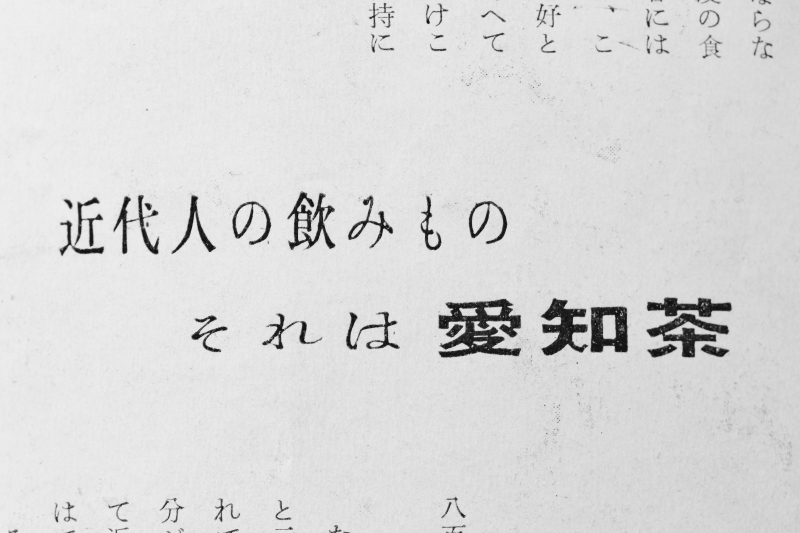 近代人の飲みもの
それは愛知茶
ならな
の食
には
こ
好と
へて
けこ
持に
八百
と
れて
分が
て近
はて